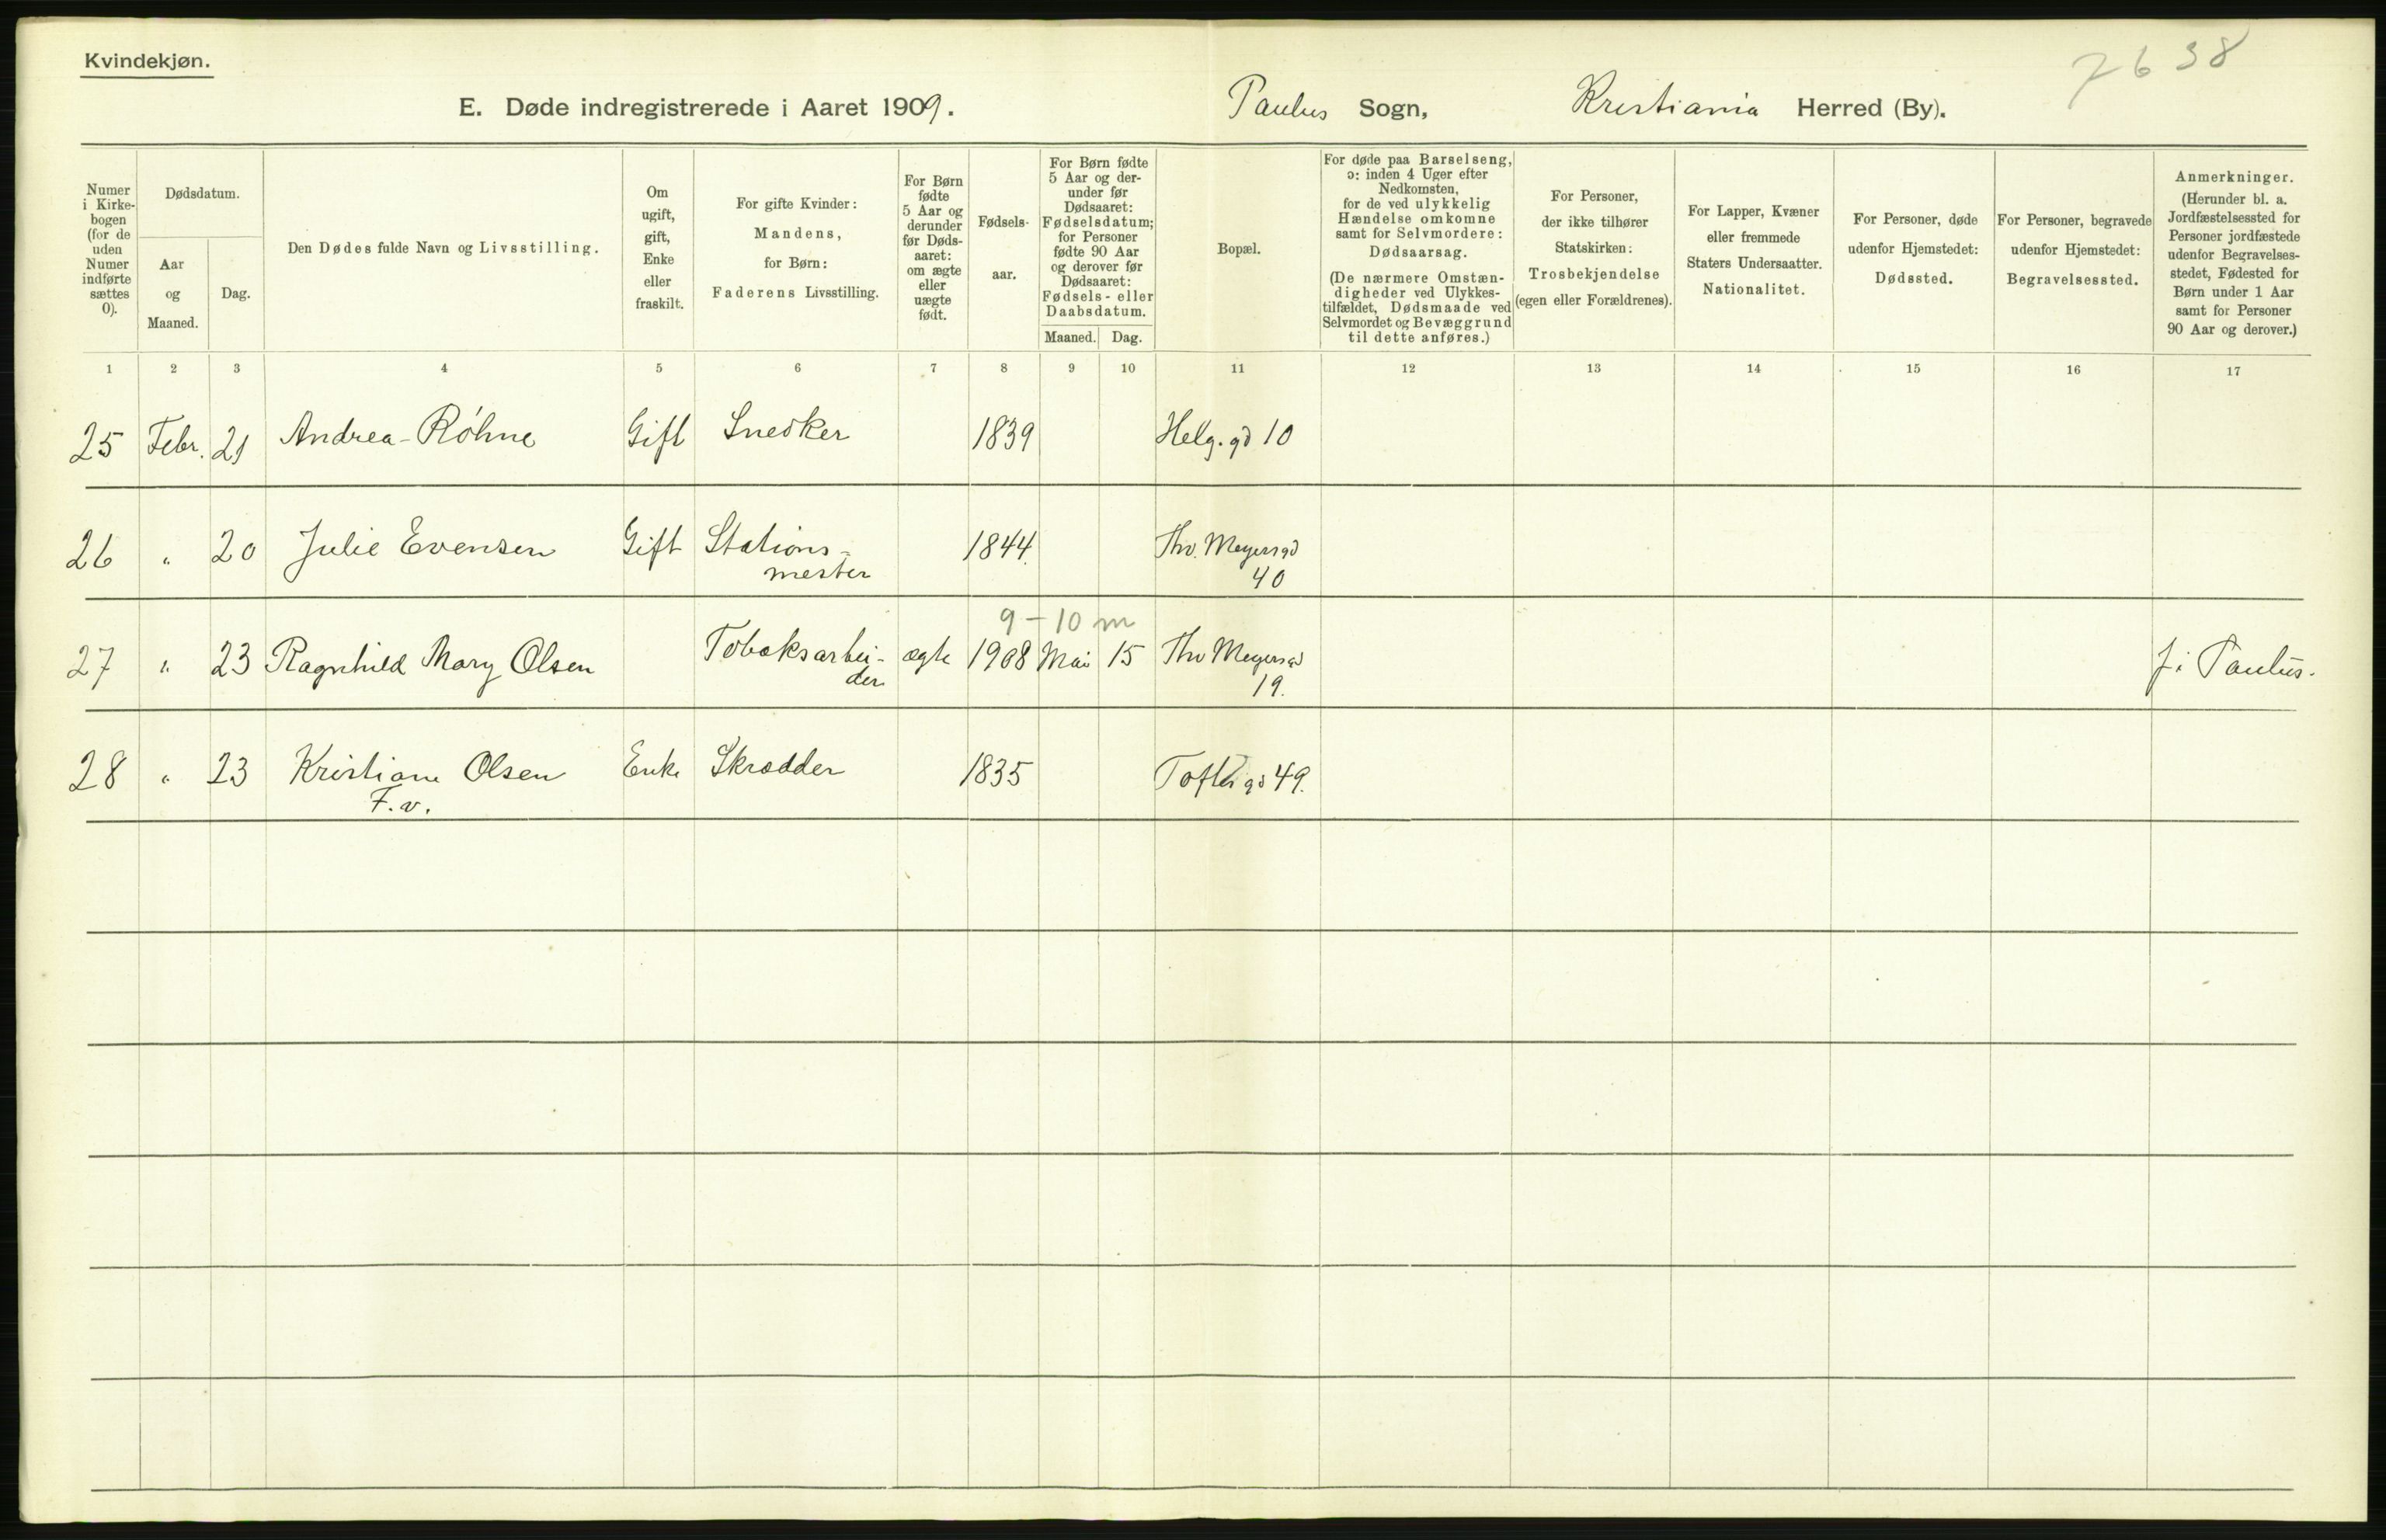 Kvindekjøn.
7638
E. Døde indregistrerede i Aaret 1909. Paulus Sogn, Kristiania Herred (By).
Numer
i Kirke-
bogen
(for de
uden
Numer
indførte
sættes
0).
Dødsdatum.
Aar
og
Maaned.
Dag.
Den Dødes fulde Navn og Livsstilling.
Om
ugift,
gift,
Enke
eller
fraskilt.
For gifte Kvinder:
Mandens,
for Børn:
Faderens Livsstilling.
For Børn
fødte
5 Aar og
derunder
før Døds-
aaret:
om ægte
eller
uægte
født.
Fødsels-
aar.
For Børn fødte
5 Aar og der-
under før
Dødsaaret:
Fødselsdatum;
for Personer
fødte 90 Aar
og derover før
Dødsaaret:
Fødsels- eller
Daabsdatum.
Maaned. Dag.
Bopæl.
For døde paa Barselseng,
ɔ: inden 4 Uger efter
Nedkomsten,
for de ved ulykkelig
Hændelse omkomne
samt for Selvmordere:
Dødsaarsag.
(De nærmere Omstæn-
digheder ved Ulykkes-
tilfældet, Dødsmaade ved
Selvmordet og Bevæggrund
til dette anføres.)
For Personer,
der ikke tilhører
Statskirken:
Trosbekjendelse
(egen eller Forældrenes).
For Lapper, Kvæner
eller fremmede
Staters Undersaatter.
Nationalitet.
For Personer, døde
udenfor Hjemstedet:
Dødssted.
For Personer, begravede
udenfor Hjemstedet:
Begravelsessted.
Anmerkninger.
(Herunder bl. a.
Jordfæstelsessted for
Personer jordfæstede
udenfor Begravelses-
stedet, Fødested for
Børn under 1 Aar
samt for Personer
90 Aar og derover.)
1 2 3 4 5 6 7 8 9 10 11 12 13 14 15 16 17
25 Febr. 21 Andrea Röhne Gift Snedker 1839 Helg. gd 10
26 " 20 Julie Evensen Gift Stations-
mester 1844. Thv. Meyersgd
40
9-10 m
27 " 23 Ragnhild Mary Olsen Tobaksarbei-
der ægte 1908 Mai 15 Thv Meyersgd
19. f. i Paulus.
28 " 23 Kristiane Olsen Enke Skrædder 1835 Toftesgd 49.
F.v.